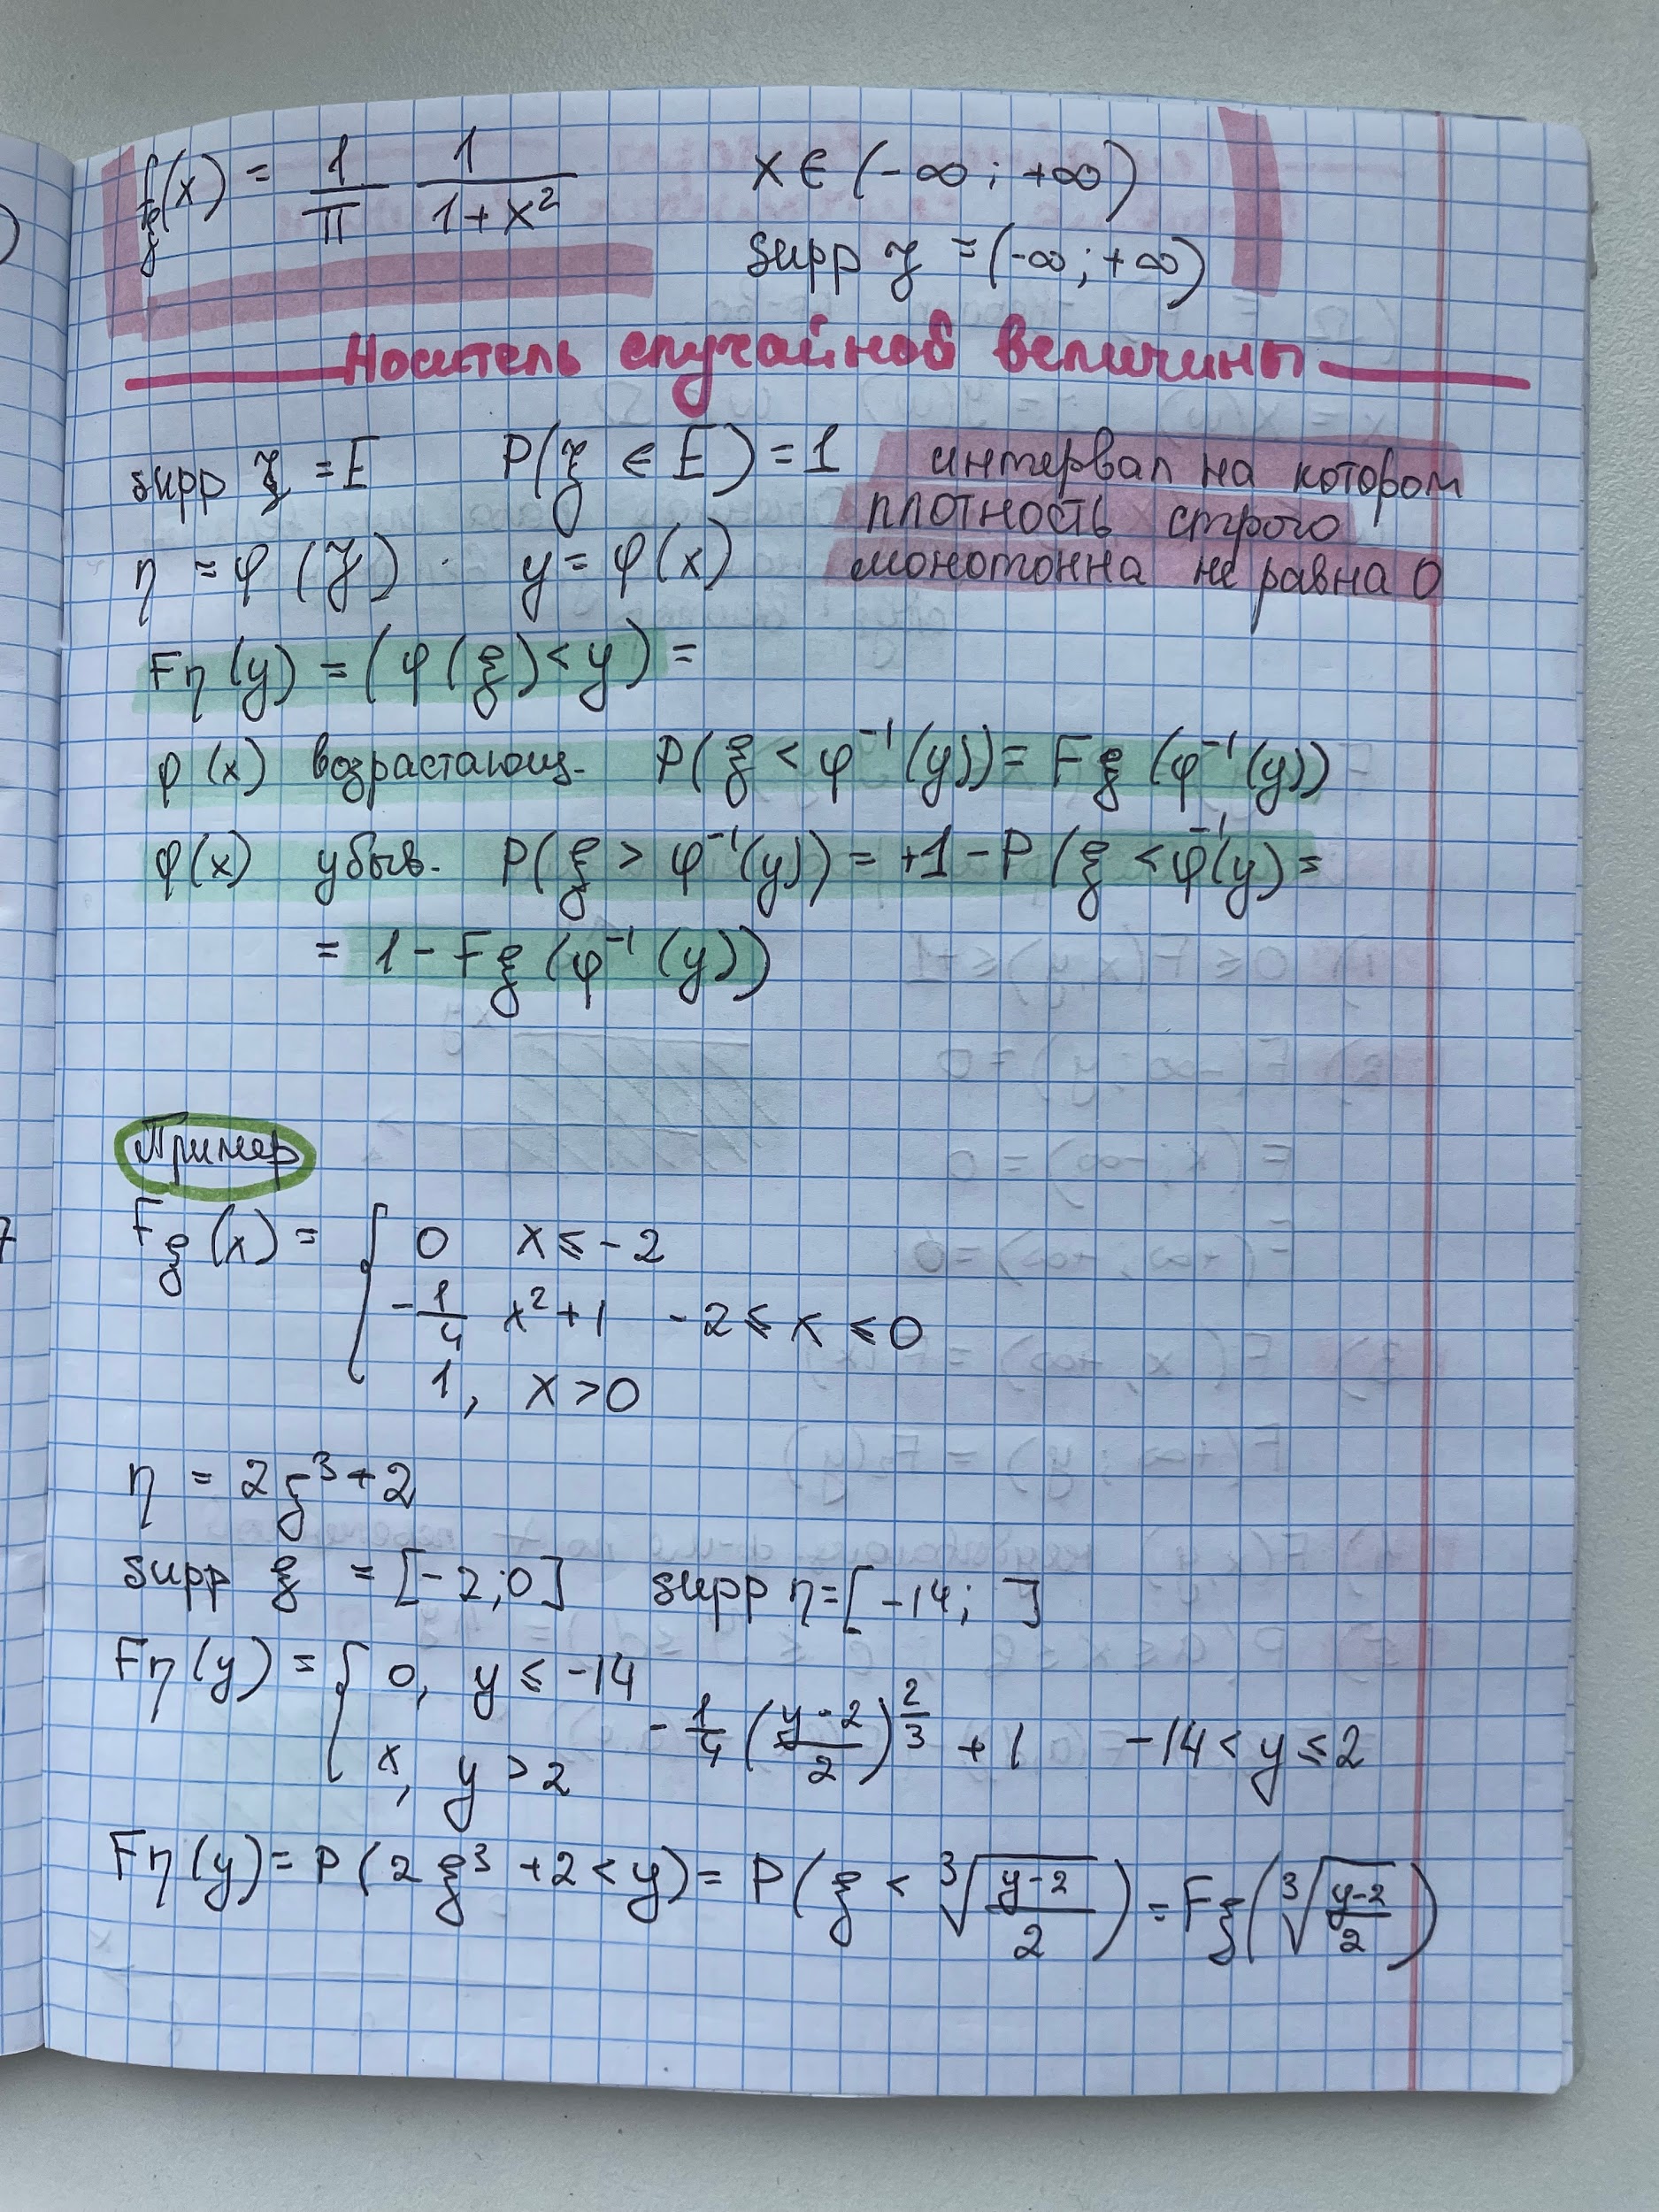 f_ξ(x) = 1/π 1/(1+x²) x ∈ (-∞; +∞)
supp ξ = (-∞; +∞)
Носитель случайной величины
supp ξ = E P(ξ ∈ E) = 1 интервал на котором
плотность строго
η = φ(ξ) . y = φ(x) монотонна не равна 0
Fη(y) = (φ(ξ) < y) =
φ(x) возрастающ. P(ξ < φ⁻¹(y)) = Fξ(φ⁻¹(y))
φ(x) убыв. P(ξ > φ⁻¹(y)) = +1 - P(ξ < φ⁻¹(y) =
= 1 - Fξ(φ⁻¹(y))
Пример
Fξ(x) = { 0 x ≤ -2
-1/4 x² + 1 -2 ≤ x ≤ 0
1, x > 0
η = 2ξ³ + 2
supp ξ = [-2; 0] supp η = [-14; ]
Fη(y) = { 0, y ≤ -14
-1/4 ((y-2)/2)^(2/3) + 1 -14 < y ≤ 2
x, y > 2
Fη(y) = P(2ξ³ + 2 < y) = P(ξ < ∛((y-2)/2)) = Fξ(∛((y-2)/2))